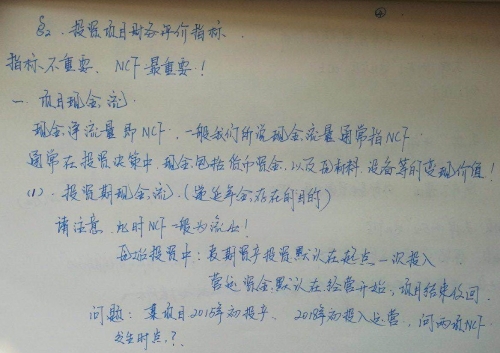 ④
§2. 投资项目财务评价指标.
指标不重要, NCF 最重要!
一. 项目现金流.
现金净流量即NCF. 一般我们所说现金流量通常指NCF.
通常在投资决策中, 现金包括货币资金, 以及原材料, 设备等的变现价值!
(1). 投资期现金流. (递延年金存在的目的)
请注意, 此时NCF一般为流出!
原始投资中: 长期资产投资默认在起点一次投入
营运资金默认在经营开始, 项目结束收回.
问题: 某项目2015年初投产, 2018年初投入运营, 问两项NCF
发生时点?